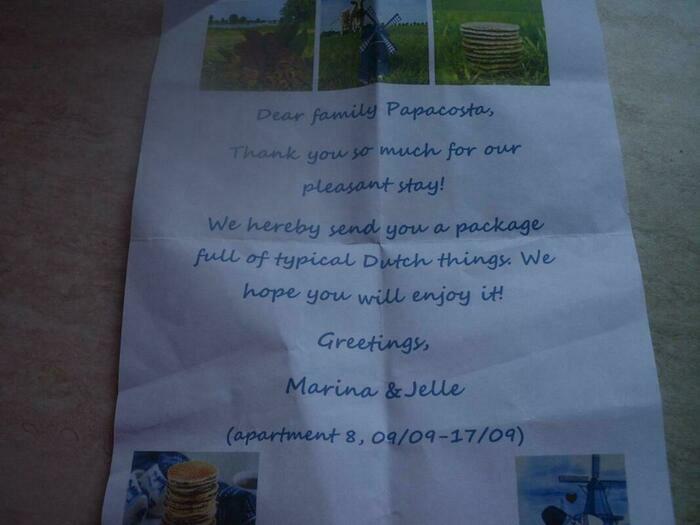 Dear family Papacosta,
Thank you so much for our
pleasant stay!
We hereby send you a package
full of typical Dutch things. We
hope you will enjoy it!
Greetings,
Marina & Jelle
(apartment 8, 09/09-17/09)